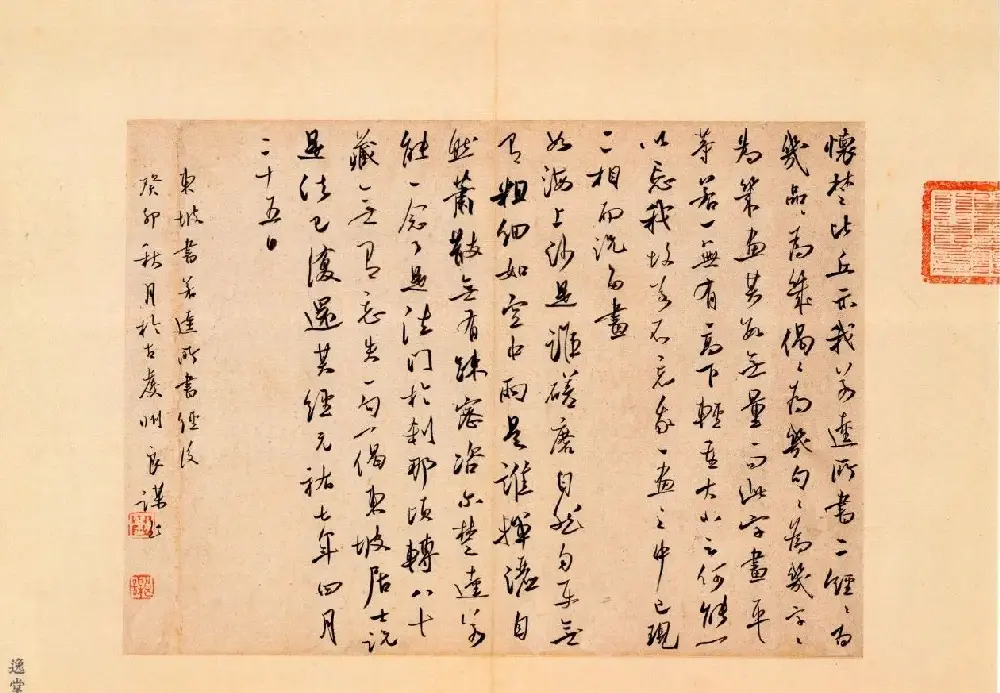 懷楚比丘示我若逵所書二經〻為
幾品〻為幾偈〻為幾句〻為幾字〻
為幾畫其數无量而此字畫平
等若一無有高下輕重大小云何能一
以忘我故若不忘我一畫之中已現
二相而況多畫
如海上沙是誰磋磨自然勻平无
有粗細如空中雨是誰揮灑自
然蕭散无有疎密咨尔楚逵若
能一念了是法門於剎那頃轉八十
藏无有忘失一句一偈東坡居士說
是法已復還其經元祐七年四月
二十五日
東坡書若逵所書經後
癸卯秋月於古虔州良謀
逸堂